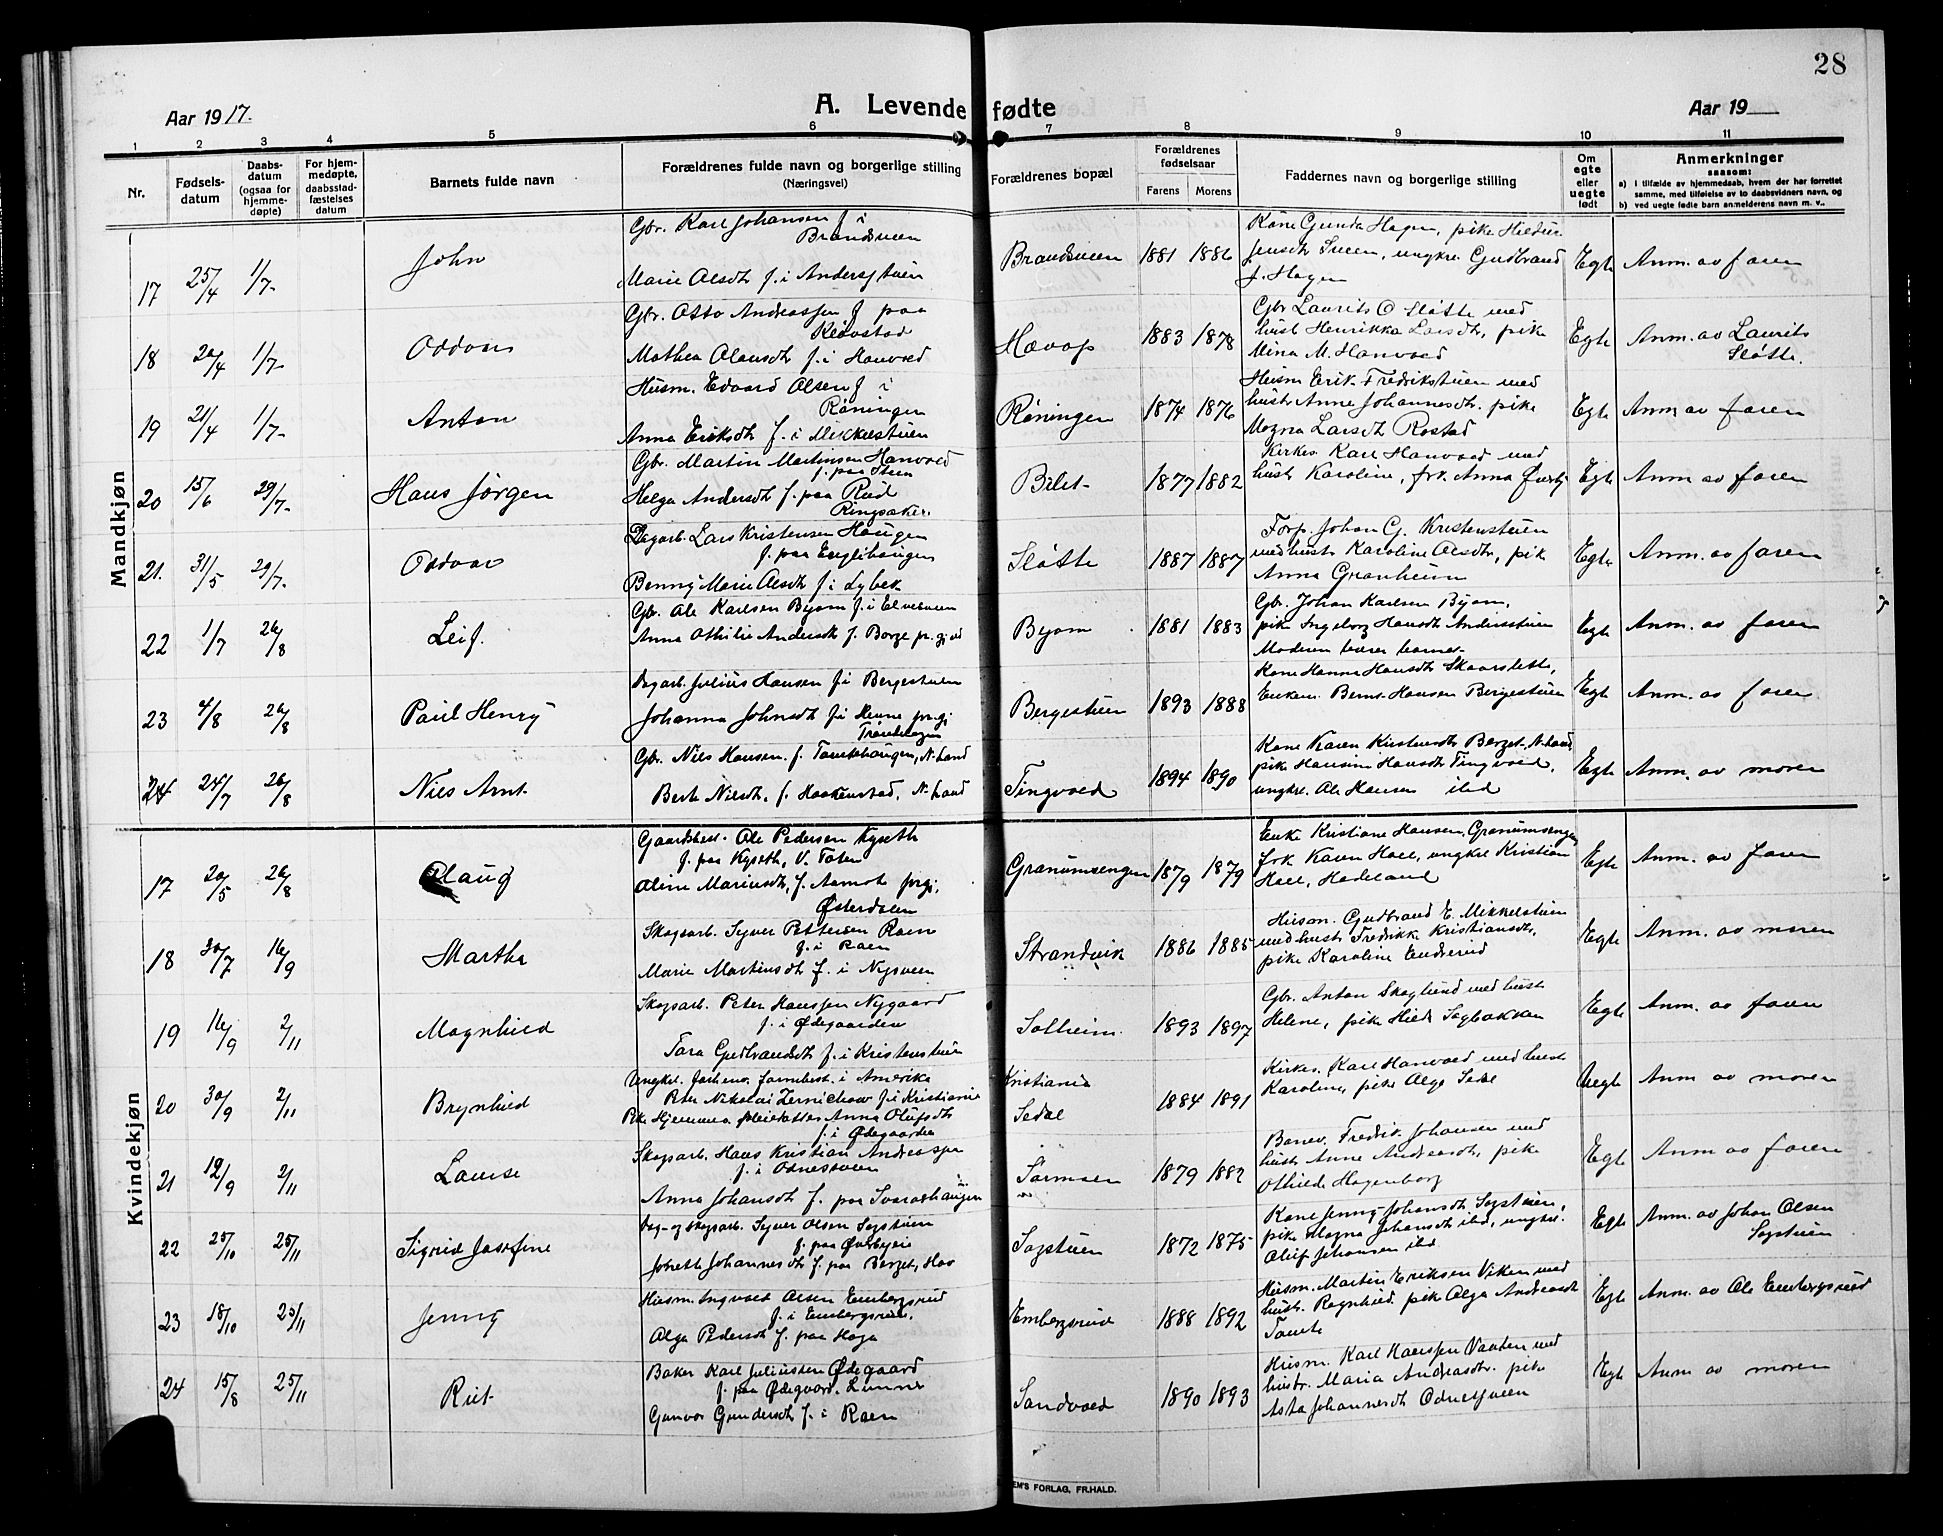 28
Aar 1917.
A. Levende fødte
Aar 19
1 2 3 4 5 6 7 8 9 10 11
Nr.
Fødsels-
datum
Daabs-
datum
(ogsaa for
hjemme-
døpte)
For hjem-
medøpte,
daabsstad-
fæstelses
datum
Barnets fulde navn
Forældrenes fulde navn og borgerlige stilling
(Næringsvei)
Forældrenes bopæl
Forældrenes
fødselsaar
Farens Morens
Faddernes navn og borgerlige stilling
Om
egte
eller
uegte
født
Anmerkninger
saasom:
a) i tilfælde av hjemmedaab, hvem der har forrettet
samme, med tilføielse av to daabsvidners navn, og
b) ved uegte fødte barn anmelderens navn m. v..
Mandkjøn
17 25/4 1/7- John
Gbr. Karl Johansen f i
Brandsveen
Marie Olsdt f. i Anderstuen
Brandsveen 1881 1886
Kone Gunda Hagen, pike Hilda
Jensdt Sveen, ungkr. Gudbrand
J. Hagen
Egte Anm. av faren
18 20/4 1/7- Oddvar
Gbr. Otto Andreassen f paa
Røvstad
Mathea Olausdt f. i Hanvold
Hævop 1883 1878
Gbr Laurits O Sløtte med
hust Henrikka Larsdt, pike
Mina M. Hanvold
Egte Anm. av Laurits
Sløtte.
19 21/4 1/7- Anton
Husm. Edvard Olsen f i
Røningen
Anna Eriksdt f. i Mikkelstuen
Røningen 1874 1876
Husm Erik Fredrikstuen med
hustr Anne Johannesdt. pike
Magna Larsdt Rostad
Egte Anm av faren
20 15/6 29/7- Hans Jørgen
Gbr. Martin Martinsen Hanvold
f. paa Stuen
Helga Andersdt f. paa Rud
Ringsaker.
Bilet 1877 1882
Kirkes. Karl Hanvold med
hust Karoline, frk. Anna Øverby
Egte Anm av faren
21. 31/5 29/7- Oddvar
Dagarb. Lars Kristensen Haugen
f. paa Englihaugen
Benny Marie Olsdt f. i Lybek
Sløtte 1887 1887
Forp. Johan G. Kristenstuen
med hustr Karoline Olsdt, pik
Anna Granheim
Egte Anm. av faren
22 1/7 26/8 Leif.
Gbr. Ole Karlsen Byom f. i Elvesveen
Anna Othilie Andersdt f. Borge pr.gj.vd
Byom 1881 1883
Gbr. Johan Karlsen Byom,
pike Ingeborg Hansdt Andersstuen
Moderen bærer barnet-
Egte Anm. av faren
23 4/8 26/8 Paul Henry
Dagarb. Julius Hansen f i Bergestuen
Johanna Johnsdt f i Henne pr.gj.
Bergestuen 1893 1888
Kone Hanna Hansdt Skaarslette,
Enkem. Bernt Hansen Bergestuen
Egte Anm. av faren
24 24/7 26/8 Nils Arnt
Gbr. Nils Hansen f. Tomlehaugen, N. Land
Berte Nilsdt, f. Haakenstad, N. Land
Tingvold 1894 1890
Kone Karen Kristensdt Berget, N. Land
pike Hansine Hansdt Tingvold,
ungkr. Ole Hansen ibd
Egte Anm. av moren
Kvindekjøn
17 20/5 26/8 Olaug
Gaardsbest. Ole Pedersen Kyseth
f. paa Kyseth, V. Toten
Oline Mariusdt, f. Aamot prgj.
Østerdalen
Granumsengen 1879 1879
Enke Kristiane Hansen, Granumsengen
frk Karen Hoel, ungkr Kristian
Hoel, Hadeland
Egte Anm. av faren
18 30/7 16/9 Martha
Skogsarb. Syver Pettersen Raen
f. i Raen
Marie Martinsdt f. i Nysveen
Strandvik 1886 1885
Husm. Gudbrand E. Mikkelstuen
med hustr Fredrikke Kristiansdt,
pike Karoline Endrerud
Egte Anm. av moren
19 16/9 2/11 Magnhild
Skogsarb. Peter Hanssen Nygaard
f. i Ødegaarden
Tora Gudbrandsdt f. i Kristenstuen
Solheim. 1893 1897
Gbr. Anton Skoglund med hust
Helene, pike Hilda Sagbakken
Egte Anm. av faren
20 30/9 2/11 Brynhild
Ungkar. i Amerika
Peter Nikolai Zernichow f. i Kristiania
Pike Hjemmev. Anna Olufsdt
f. i Ødegaarden
Kristiania
Sedal
1884 1891
Kirkes. Karl Hanvold med hust
Karoline, pike Olga Sedal
Uegte Anm av moren
21 12/9 2/11 Lovise
Skogsarb. Hans Kristian Andreassen
f. i Odnessveen
Anna Johansdt f. paa Svarashaugen
Sørmoen 1879 1882
Banev. Fredrik Johansen med
hust Anne Andreasdt, pike
Othilde Hagenborg
Egte Anm av faren
22 25/10 25/11 Sigrid Josefine
Dag- og Skogsarb. Syver Olsen Sagstuen
f. paa Øverbyeie
Joneth Johannesdt f. paa Berget, Hov
Sagstuen 1872 1875
Kone Jenny Johansdt Sagstuen,
pike Magna Johansdt ibd, ungkr.
Oluf Johansen ibd
Egte Anm. av Johan Olsen
Sagstuen
23 18/10 25/11 Jenny
Husm. Ingvald Olsen Embergsrud
f. i Embergsrud.
Olga Pedersdt f. paa Haga
Embergsrud 1888 1892
Husm. Martin Eriksen Viken med
hustr. Ragnhild. pike Olga Andreasdt
Tomte
Egte Anm. av Ole Embergsrud
24 15/8 25/11 Rut
Baker Karl Juliussen Ødegaard
f. paa Ødegaard. Lunner
Gunvor Gundersdt f. i Raen
Sandvold 1890 1893
Husm. Karl Hanssen Vaaten med
hustr. Maria Andreasdt. pike
Asta Johannesdt Odnessveen
Egte Anm av moren
EM'S FORLAG, FR.HALD.